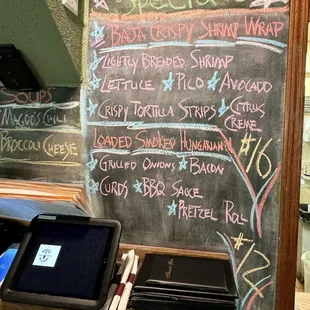 Specials
Baja Crispy Shrimp Wrap
Lightly Breded Shrimp
Lettuce Pico Avocado
Crispy Tortilla Strips Citrus
Creme
$16
Loaded Smoked Hungarian
Grilled Onions Bacon
Curds BBQ Sauce
Pretzel Roll
$12
Soups
Magoo's Chili
Broccoli Cheese